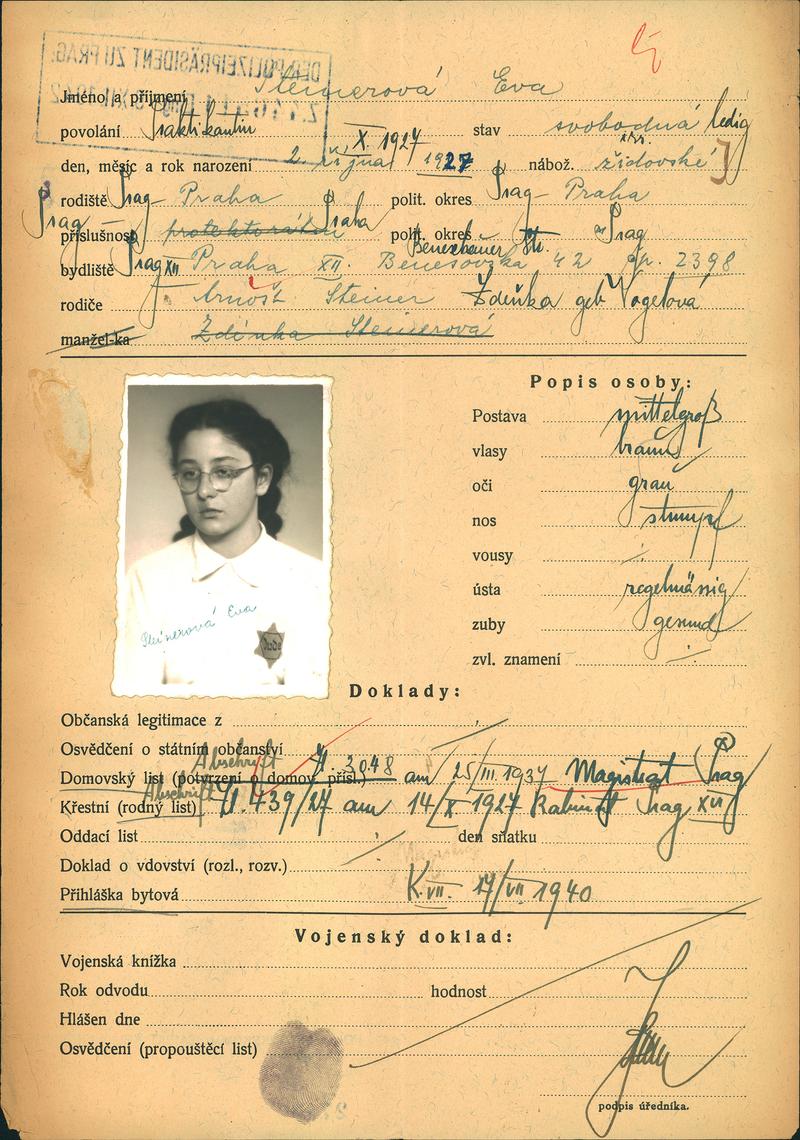 DER POLIZEIPRÄSIDENT ZU PRAG
Jméno a příjmení Steinerová Eva
povolání Praktikantin stav svobodná ledig
X. 1927
den, měsíc a rok narození 2. října 1927 nábož. židovské
rodiště Prag – Praha polit. okres Prag – Praha
Prag – Praha
příslušnost protektorátní polit. okres Prag
Beneschauer Str.
bydliště Prag XII Praha XII. Benešovská 42 čp. 2398
rodiče Arnošt Steiner Zdeňka geb Vogelová
manžel-ka Zdeňka Steinerová
Popis osoby:
Postava mittelgroß
vlasy braun
oči grau
nos stumpf
vousy
ústa regelmäßig
zuby gesund
zvl. znamení
Steinerová Eva
Jude
Doklady:
Občanská legitimace z
Osvědčení o státním občanství
Abschrift
Domovský list (potvrzení o domov. přísl.) Zl. 3048 am 25/III.1937 Magistrat Prag
Abschrift
Křestní (rodný list) Zl. 439/27 am 14/X 1927 Rabinat Prag XII
Oddací list den sňatku
Doklad o vdovství (rozl., rozv.)
Přihláška bytová K. VII. 17/VII 1940
Vojenský doklad:
Vojenská knížka
Rok odvodu hodnost
Hlášen dne
Osvědčení (propouštěcí list)
podpis úředníka.